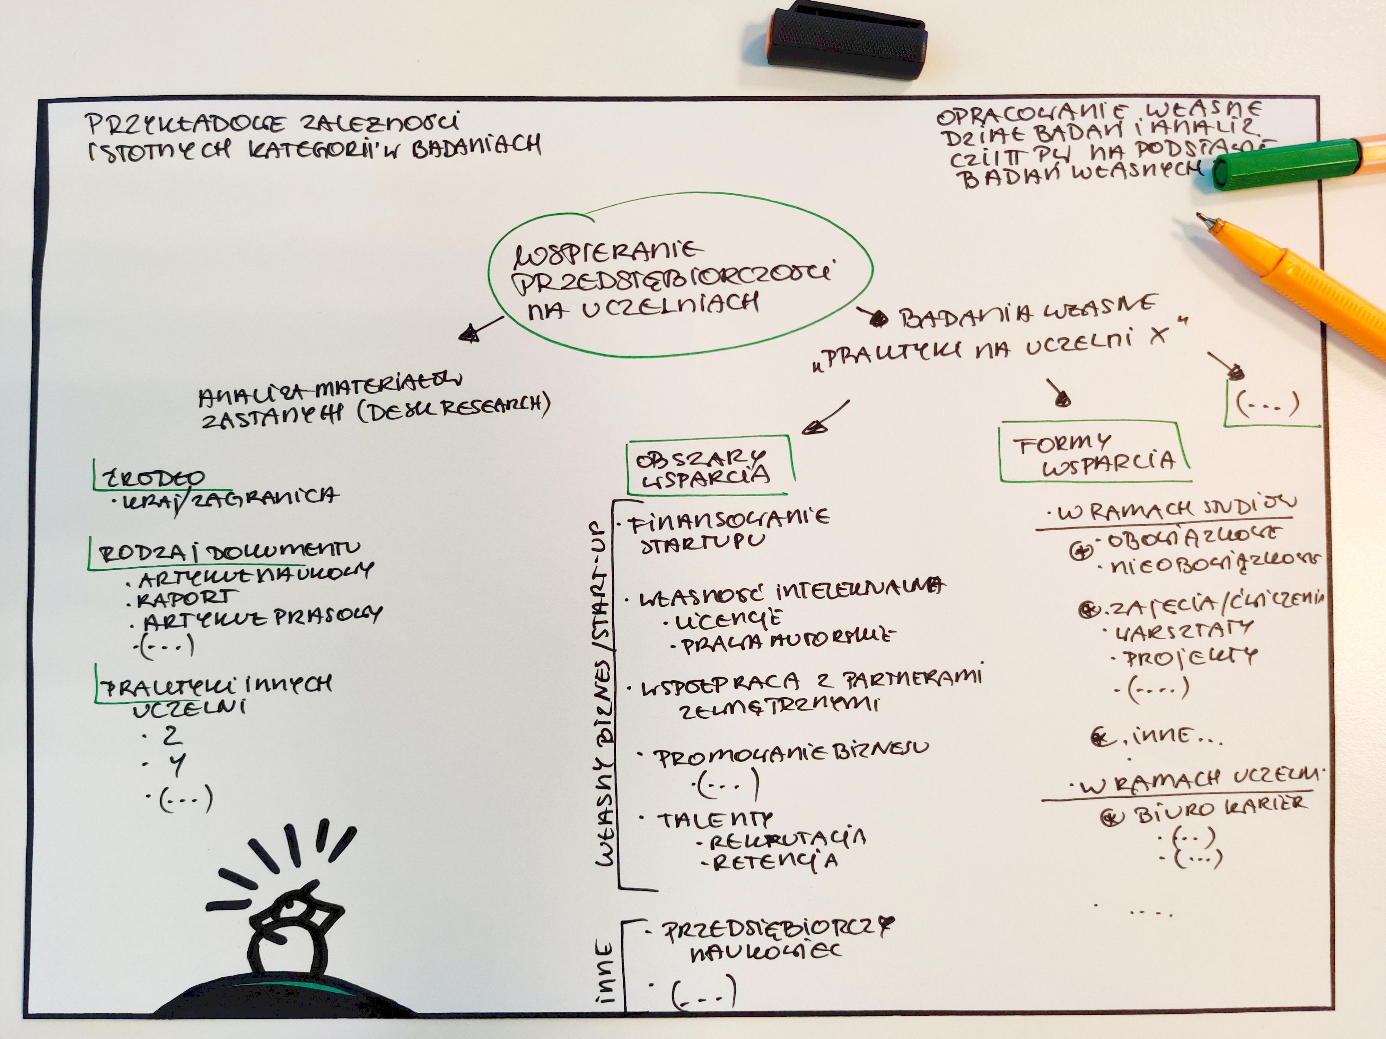 PRZYKŁADOWE ZALEŻNOŚCI
ISTOTNYCH KATEGORII W BADANIACH
OPRACOWANIE WŁASNE
DZIAŁ BADAŃ I ANALIZ
CZIITT PW NA PODSTAWIE
BADAŃ WŁASNYCH
WSPIERANIE
PRZEDSIĘBIORCZOŚCI
NA UCZELNIACH
ANALIZA MATERIAŁÓW
ZASTANYCH (DESK RESEARCH)
ŹRÓDŁO
· KRAJ/ZAGRANICA
RODZAJ DOKUMENTU
· ARTYKUŁ NAUKOWY
· RAPORT
· ARTYKUŁ PRASOWY
· (...)
PRAKTYKI INNYCH
UCZELNI
· Z
· Y
· (...)
BADANIA WŁASNE
„PRAKTYKI NA UCZELNI X"
OBSZARY
WSPARCIA
WŁASNY BIZNES/START-UP
· FINANSOWANIE
STARTUPU
· WŁASNOŚĆ INTELEKTUALNA
· LICENCJE
· PRAWA AUTORSKIE
· WSPÓŁPRACA Z PARTNERAMI
ZEWNĘTRZNYMI
· PROMOWANIE BIZNESU
· (...)
· TALENTY
· REKRUTACJA
· RETENCJA
INNE
· PRZEDSIĘBIORCZY
NAUKOWIEC
· (...)
FORMY
WSPARCIA
· W RAMACH STUDIÓW
· OBOWIĄZKOWE
· NIEOBOWIĄZKOWE
· ZAJĘCIA/ĆWICZENIA
· WARSZTATY
· PROJEKTY
· (....)
· INNE...
· W RAMACH UCZELNI
BIURO KARIER
· (...)
· (...)
· ....
(...)